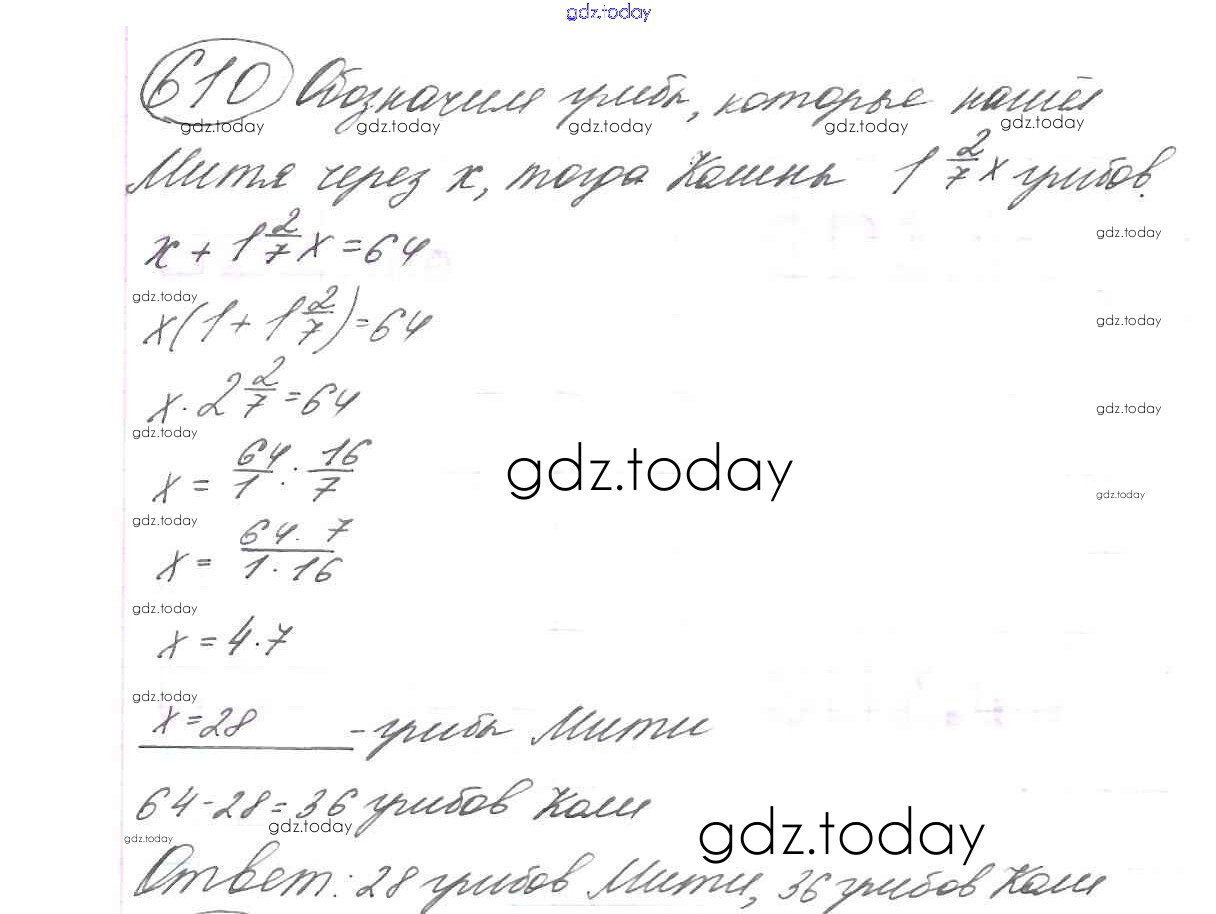 gdz.today
610 Обозначим грибы, которые нашёл
gdz.today gdz.today gdz.today gdz.today gdz.today
Митя через x, тогда Колины 1 2/7 x грибов.
x + 1 2/7 x = 64
gdz.today
gdz.today
x(1 + 1 2/7) = 64
gdz.today
x · 2 2/7 = 64
gdz.today
gdz.today
x = 64/1 : 16/7
gdz.today
gdz.today
gdz.today
x = 64 · 7 / 1 · 16
gdz.today
x = 4 · 7
gdz.today
x = 28 - грибы Мити
64 - 28 = 36 грибов Коли
gdz.today
gdz.today
gdz.today
Ответ: 28 грибов Мити, 36 грибов Коли